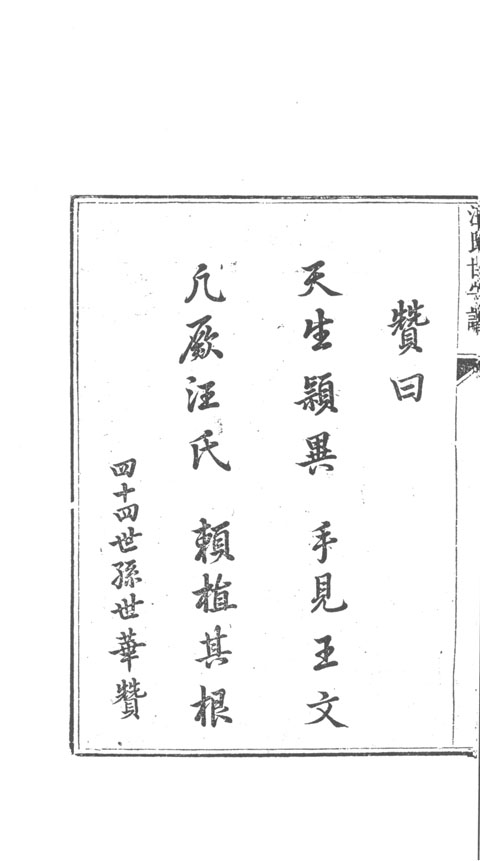 贊曰
天生穎異 手見王文
凡厥汪氏 賴植其根
四十四世孫世華贊